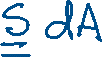 S dA